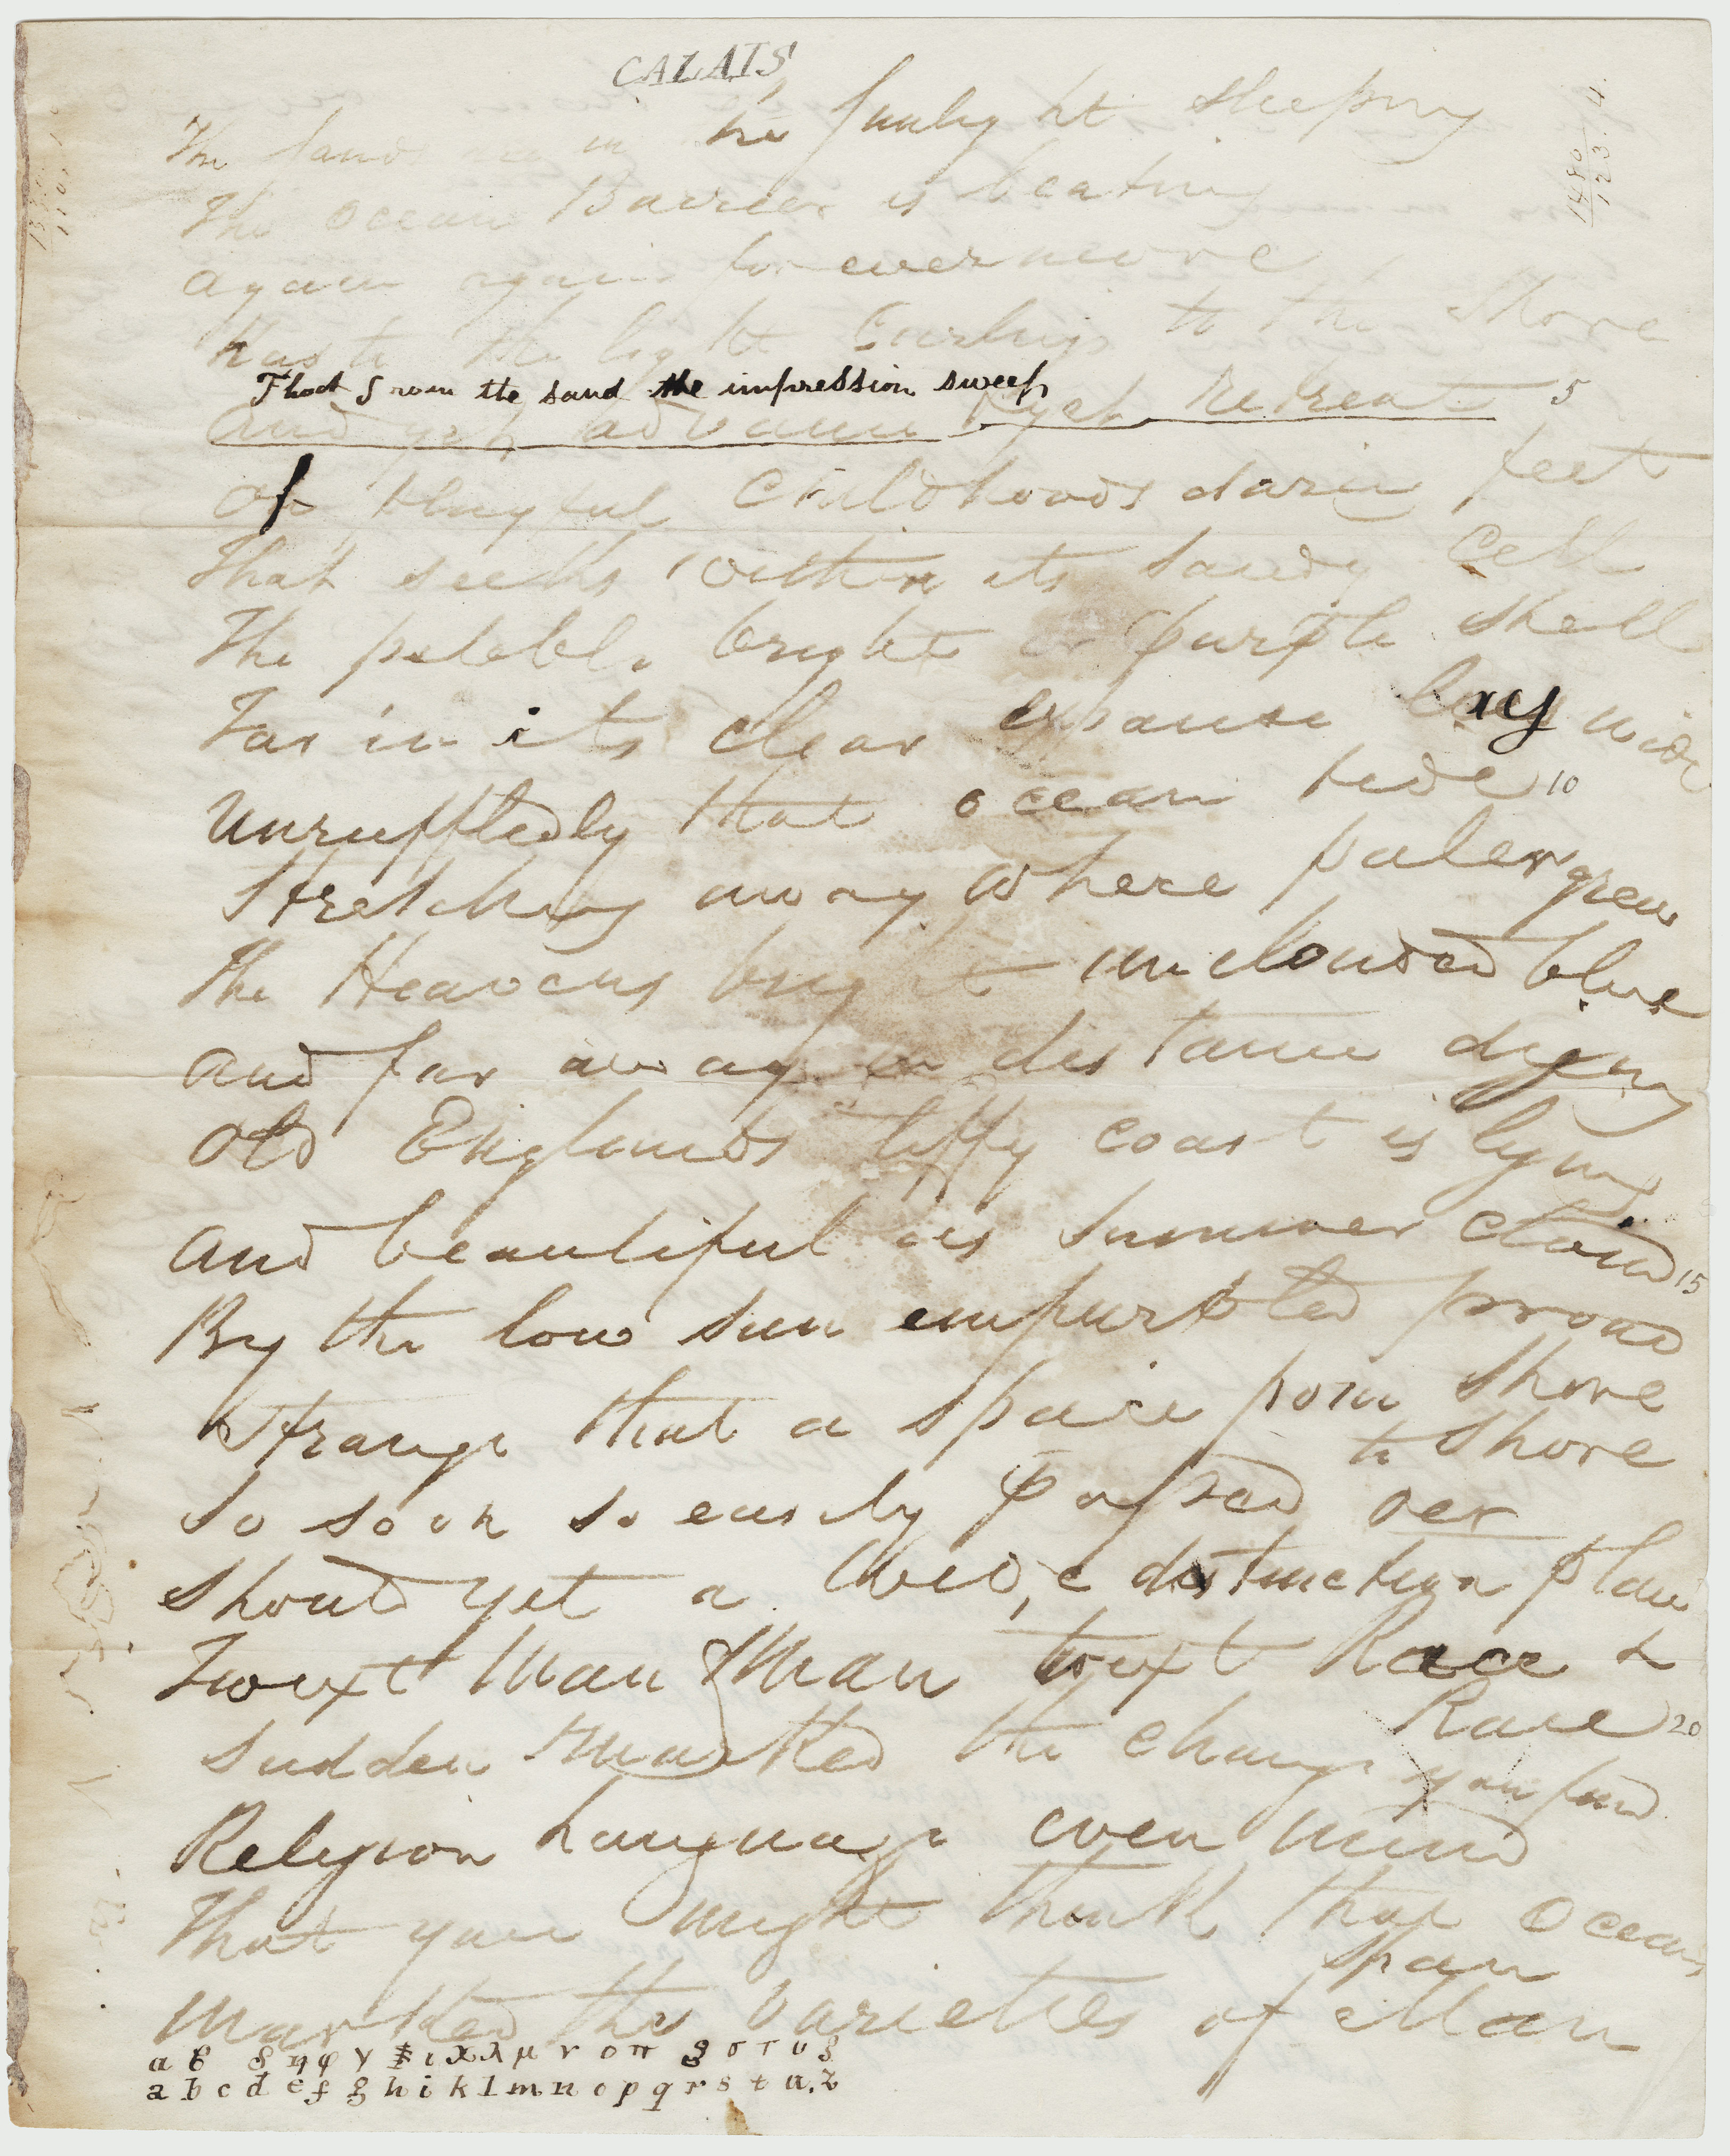 CALAIS
The sands are in the sunlight sleeping
The ocean Barrier is beating
again again for evermore
the light Curling to the Shore
That from the sand the impression sweep
and yet advance yet Retreat 5
of playful Childhoods daring feet
That seeks within its sandy Cell
The pebble bright or purple shell
Far in its clear expanse lay wide
Unruffledly that ocean tide 10
Stretching away where paler grew
The Heavens bright unclouded blue
and far away in distance dying
Old Englands cliffy coast is lying
and beautiful as Summer cloud 15
By the low sun empurpled proud
Strange that a space from Shore
to Shore
So soon so easily passed oer
Should yet a Wide distinction place
Twixt Man & Man twixt Race &
Race 20
Sudden & marked the change you find
Religion Language even mind
That you might think that Oceans
span
Marked the Varieties of Man
a b c d e f g h i k l m n o p q r s t u. z
1480
123.4.